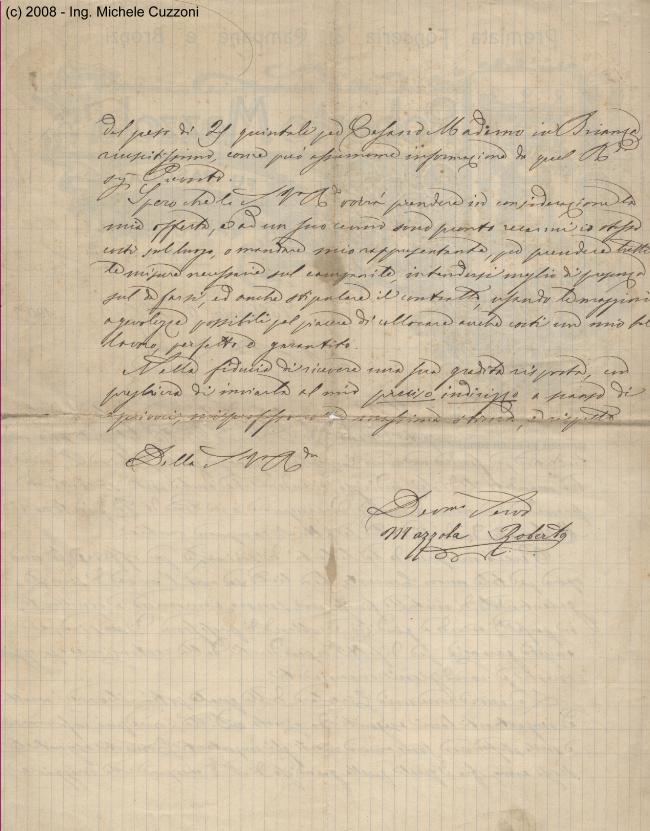 (c) 2008 - Ing. Michele Cuzzoni
del peso di 25 quintale per Cesano Maderno in Brianza
riuscitissimo, come può assumerne informazione da quel Rdo
Sig. Prevosto.
Spero che la S V Rda vorrà prendere in considerazione la
mia offerta, e ad un suo cenno sono pronto recarmi io stesso
costì sul luogo, o mandare mio rappresentante, per prendere tutte
le misure necessarie sul campanile intendersi meglio di presenza
sul da farsi, ed anche stipulare il contratto, usando le maggiori
agevolezze possibili pel piacere di collocare anche costì un mio bel
lavoro, perfetto e garantito.
Nella fiducia di ricevere una sua gradita risposta, con
preghiera di inviarla al mio preciso indirizzo a scanso di
equivoci, mi professo con massima stima, e rispetto
Della S V Rda
Devmo Servo
Mazzola Roberto